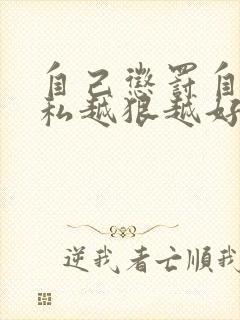 自己懲罰自
私越狠越好
逆我者亡順我